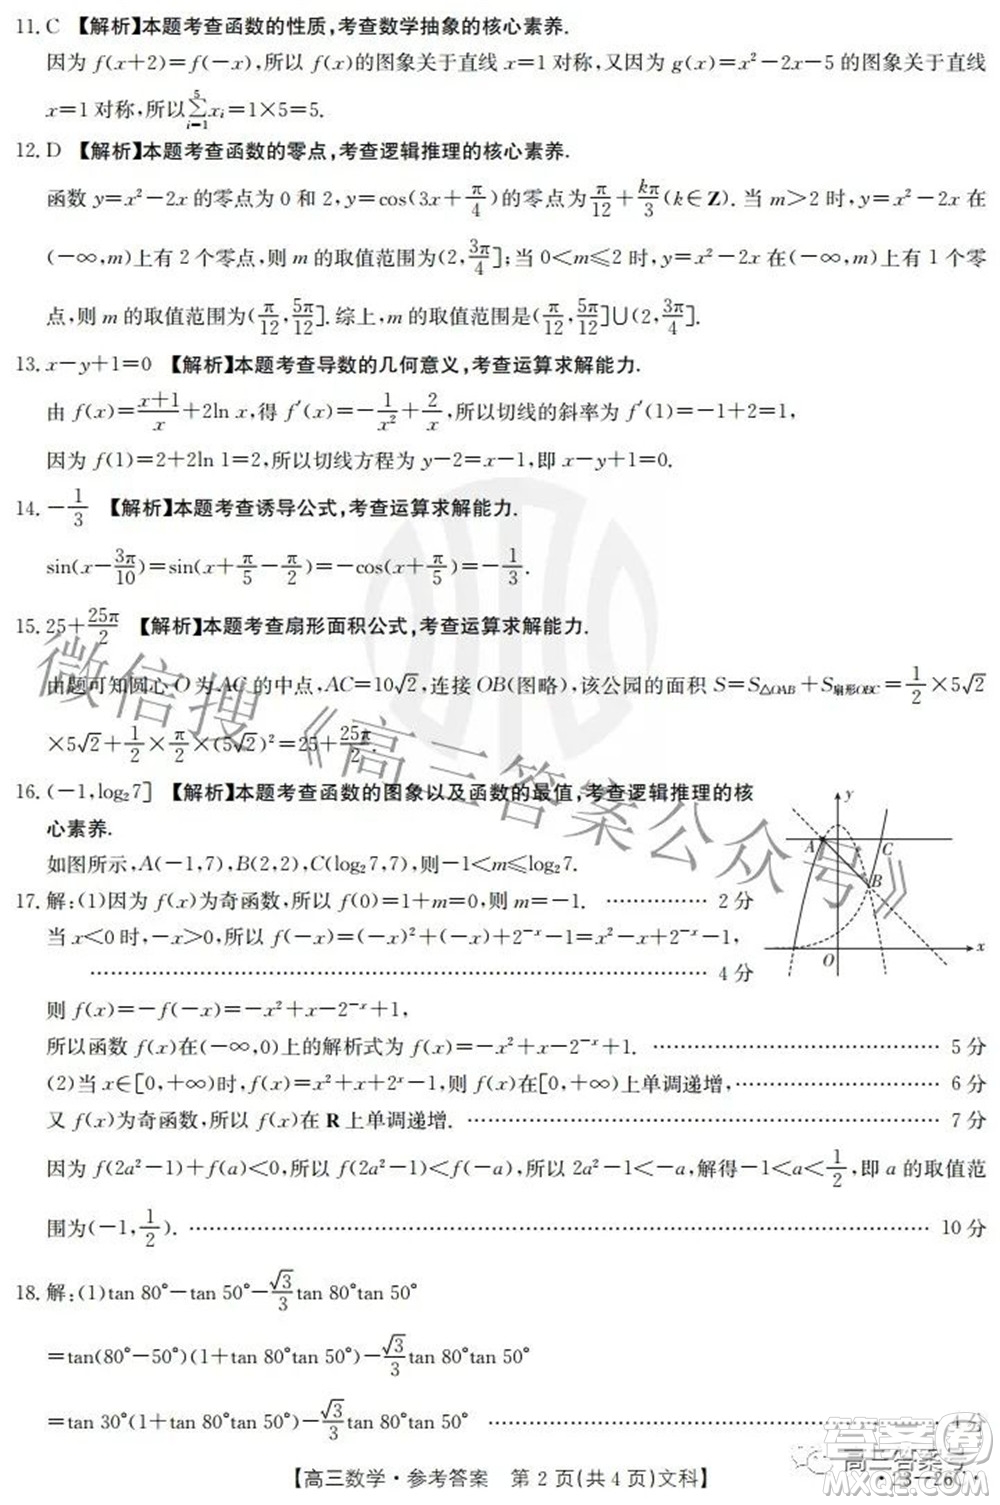 11. C 【解析】本题考查函数的性质,考查数学抽象的核心素养.
因为 f(x+2)=f(-x),所以 f(x)的图象关于直线 x=1 对称,又因为 g(x)=x²-2x-5 的图象关于直线
x=1 对称,所以∑_{i=1}^{5} x_i=1×5=5.
12. D 【解析】本题考查函数的零点,考查逻辑推理的核心素养.
函数 y=x²-2x 的零点为 0 和 2,函数 y=cos(3x+π/4)的零点为π/12+kπ/3(k∈Z). 当 m>2 时,y=x²-2x 在
(-∞,m)上有 2 个零点,则 m 的取值范围为(2,3π/4];当 0<m≤2 时,y=x²-2x 在(-∞,m)上有 1 个零
点,则 m 的取值范围为(π/12,5π/12].综上,m 的取值范围是(π/12,5π/12]∪(2,3π/4].
13. x-y+1=0 【解析】本题考查导数的几何意义,考查运算求解能力.
由 f(x)=(x+1)/x+2ln x,得 f′(x)=-1/x²+2/x,所以切线的斜率为 f′(1)=-1+2=1,
因为 f(1)=2+2ln 1=2,所以切线方程为 y-2=x-1,即 x-y+1=0.
14. -1/3 【解析】本题考查诱导公式,考查运算求解能力.
sin(x-3π/10)=sin(x+π/5-π/2)=-cos(x+π/5)=-1/3.
15. 25+25π/2 【解析】本题考查扇形面积公式,考查运算求解能力.
由题可知圆心 O 为 AC 的中点,AC=10√2,连接 OB(图略),该公园的面积 S=S△OAB+S扇形OBC=1/2×5√2
×5√2+1/2×π/2×(5√2)²=25+25π/2.
16. (-1,log₂7] 【解析】本题考查函数的图象以及函数的最值,考查逻辑推理的核
心素养.
如图所示,A(-1,7),B(2,2),C(log₂7,7),则-1<m≤log₂7.
y
A
C
B
O
x
17. 解:(1)因为 f(x)为奇函数,所以 f(0)=1+m=0,则 m=-1. …………… 2 分
当 x<0 时,-x>0,所以 f(-x)=(-x)²+(-x)+2^{-x}-1=x²-x+2^{-x}-1,
…………………………………………………………………… 4 分
则 f(x)=-f(-x)=-x²+x-2^{-x}+1,
所以函数 f(x)在(-∞,0)上的解析式为 f(x)=-x²+x-2^{-x}+1. ………………………………… 5 分
(2)当 x∈[0,+∞)时,f(x)=x²+x+2^x-1,则 f(x)在[0,+∞)上单调递增,………………………… 6 分
又 f(x)为奇函数,所以 f(x)在 R 上单调递增. …………………………………………………… 7 分
因为 f(2a²-1)+f(a)<0,所以 f(2a²-1)<f(-a),所以 2a²-1<-a,解得-1<a<1/2,即 a 的取值范
围为(-1,1/2). ……………………………………………………………………………… 10 分
18. 解:(1)tan 80°-tan 50°-√3/3tan 80°tan 50°
=tan(80°-50°)(1+tan 80°tan 50°)-√3/3tan 80°tan 50°
=tan 30°(1+tan 80°tan 50°)-√3/3tan 80°tan 50° ………………………………………… 4 分
【高三数学·参考答案 第 2 页(共 4 页)文科】
·23-26C·
微信搜《高三答案公众号》
高三答案号
答案圈